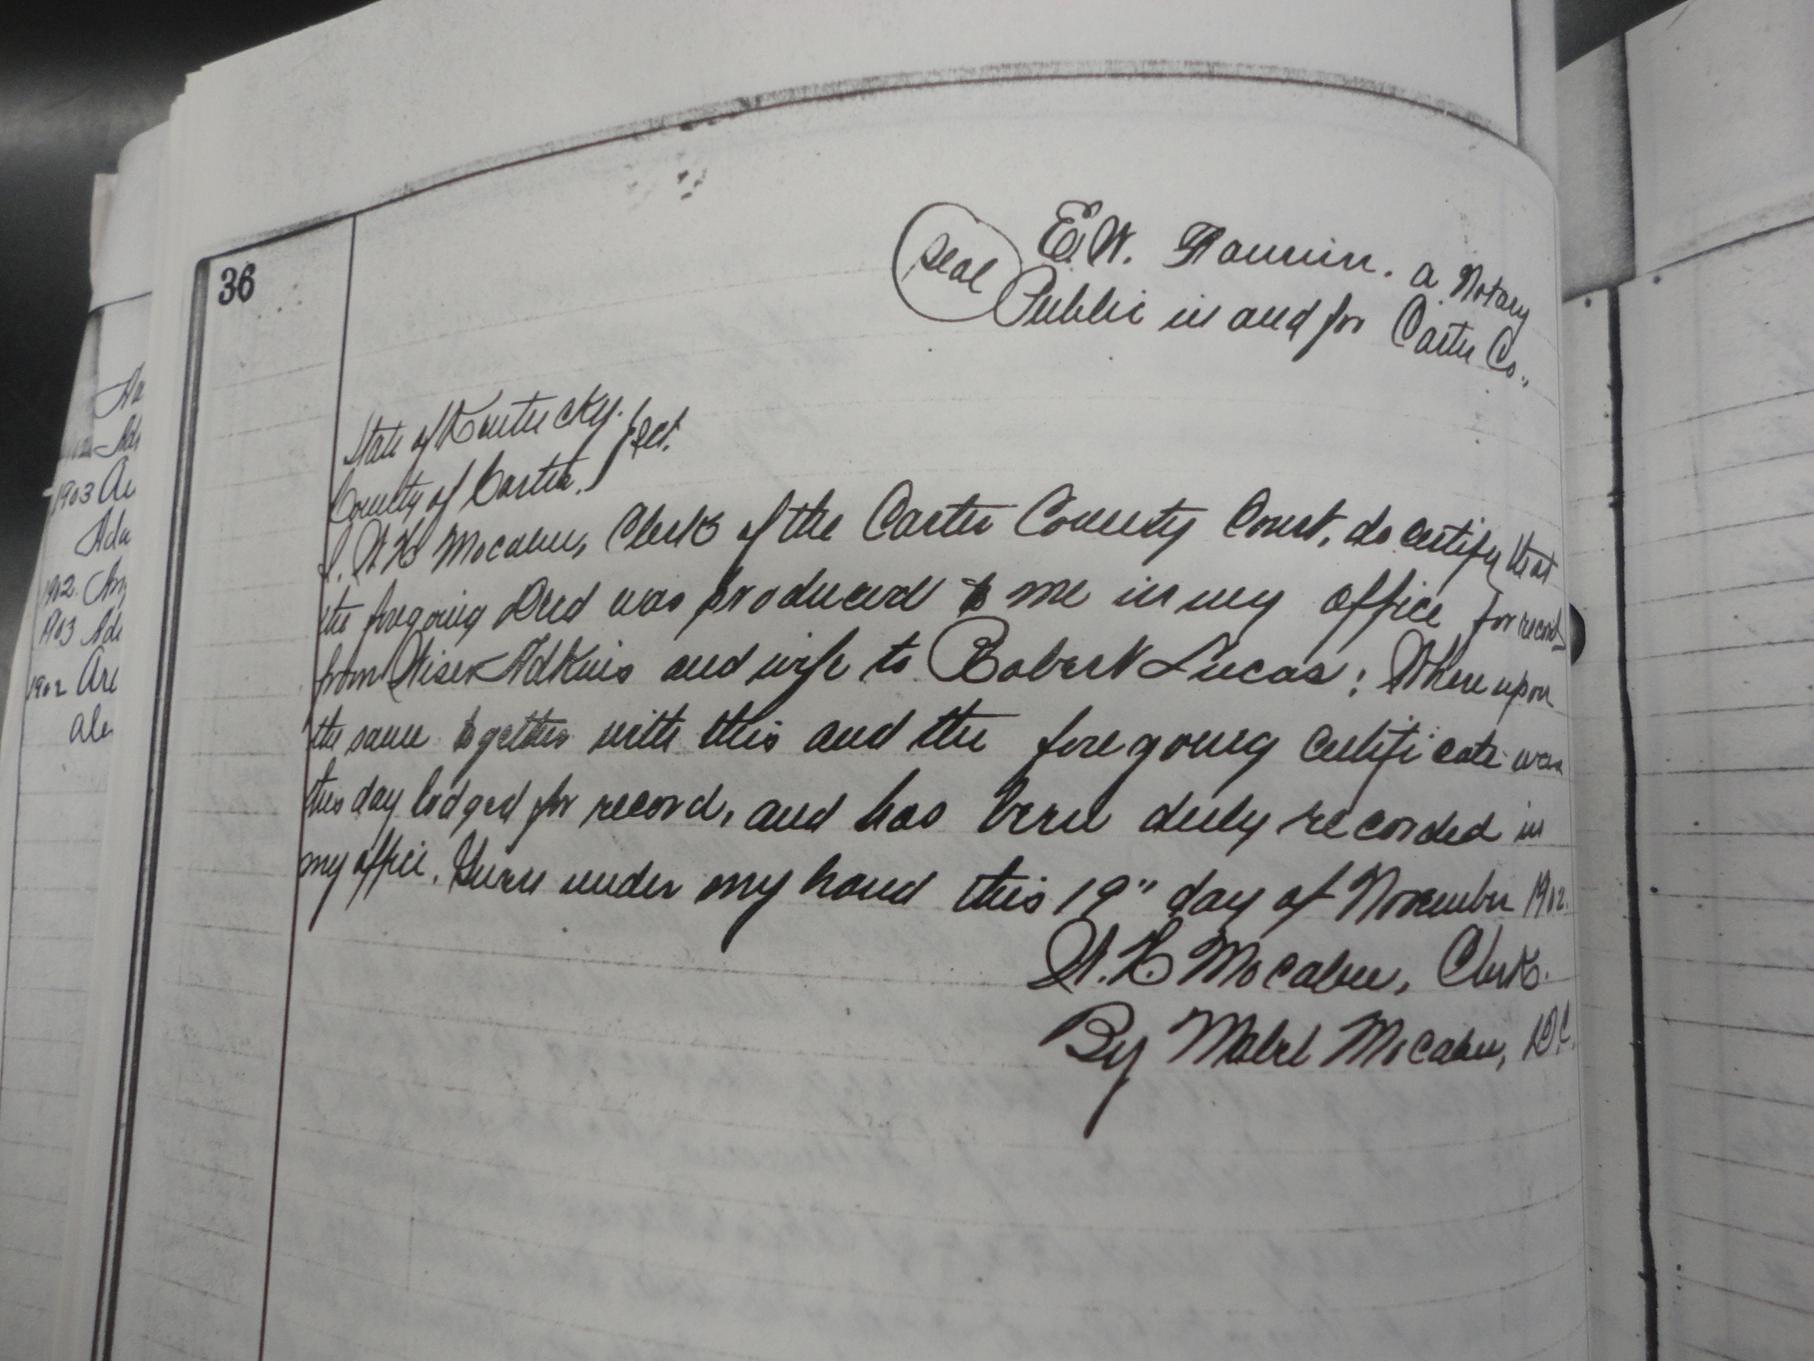 36
Seal
E.W. Fannin. a Notary
Public in and for Carter Co.,
State of Kentucky.
County of Carter. } Sct.
I, W H Mocabee, Clerk of the Carter County Court, do certify that
the foregoing Deed was produced to me in my office for record
from Wiser Adkins and wife to Robert Lucas; Where upon
the same together with this and the foregoing certificate was
this day lodged for record, and has been duly recorded in
my office. Given under my hand this 19" day of November 1902.
W. H Mocabee, Clerk.
By Mabel Mocabee, D.C.
1903
1902
1903
1902